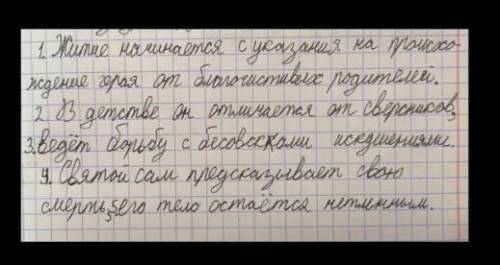 1. Житие начинается с указания на происхо-
ждение героя от благочистивых родителей.
2. В детстве он отличается от сверсников,
3. ведёт борьбу с бесовскими искушениями.
4. Святой сам предсказывает свою
смерть, 5. его тело остаётся нетленным.